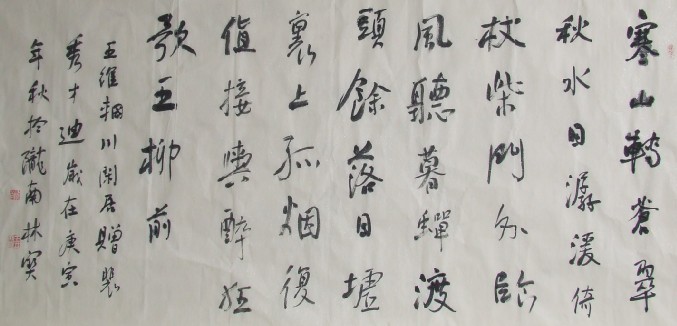 寒山轉蒼翠
秋水日潺湲倚
杖柴門外臨
風聽暮蟬渡
頭餘落日墟
裏上孤烟復
值接輿醉狂
歌五柳前
王維輞川閑居贈裴
秀才迪歲在庚寅
年秋於隴南林